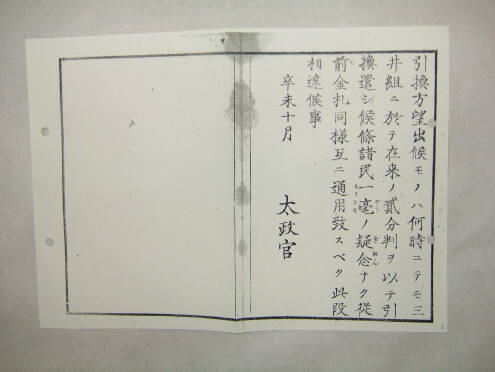 引換方望出候モノハ何時ニテモ三
井組ニ於テ在来ノ貳分判ヲ以テ引
換遣シ候條諸民一毫ノ疑念ナク従
前金札同様互ニ通用致スベク此段
相達候事
辛未十月
太政官